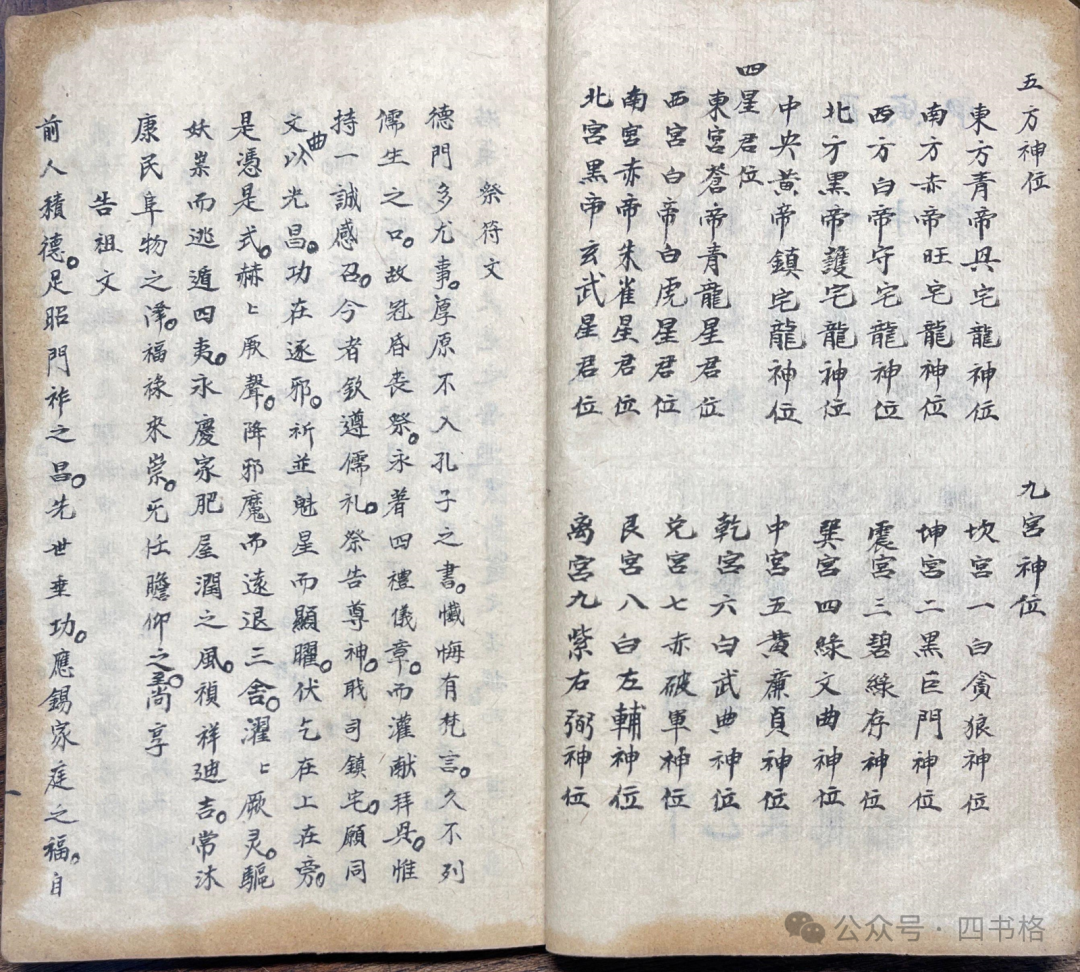 五方神位
東方青帝興宅龍神位
南方赤帝旺宅龍神位
西方白帝守宅龍神位
北方黑帝護宅龍神位
中央黃帝鎮宅龍神位
四星君位
東宮蒼帝青龍星君位
西宮白帝白虎星君位
南宮赤帝朱雀星君位
北宮黑帝玄武星君位
九宮神位
坎宮一白貪狼神位
坤宮二黑巨門神位
震宮三碧綠存神位
巽宮四綠文曲神位
中宮五黃廉貞神位
乾宮六白武曲神位
兌宮七赤破軍神位
艮宮八白左輔神位
离宮九紫右弼神位
祭符文
德門多尤事。厚原不入孔子之書。懺悔有梵言。久不列
儒生之口。故冠昏喪祭。永著四禮儀章。而灌献拜興。惟
持一誠感召。今者欽遵儒礼。祭告尊神。戝司鎮宅。願同
文曲以光昌。功在逐邪。祈並魁星而顯曜。伏乞在上在旁。
是憑是式。赫〻厥聲。降邪魔而遠退三舍。濯〻厥灵。驅
妖祟而逃遁四夷。永慶家肥屋潤之風。禎祥廸吉。常沐
康民阜物之澤。福祿來崇。旡任瞻仰之至。尚享
告祖文
前人積德。足昭門祚之昌。先世垂功。應錫家庭之福。自
公众号·四书格